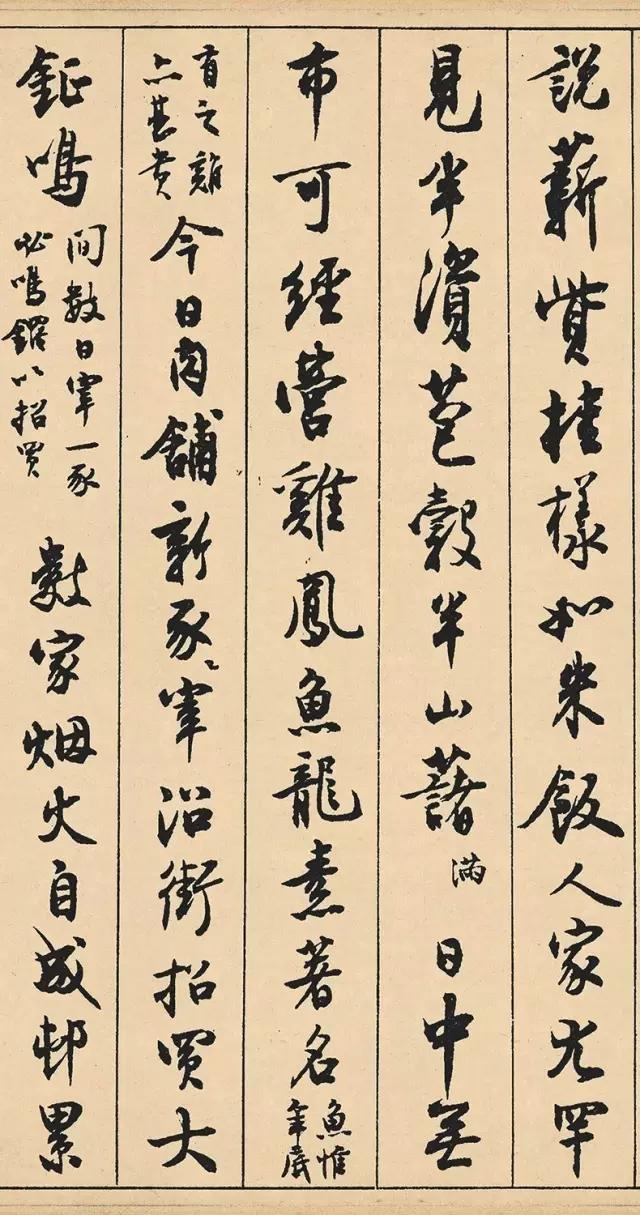 說薪貲桂樣和米飯人家尤罕
見半資苞穀半山藷滿日中無
布可經營雞鳳魚龍素著名魚惟年底
有之雞亦甚貴今日肉舖新豕宰沿街招買大
鉦鳴間數日宰一豕必鳴鑼以招買數家烟火自成邨累